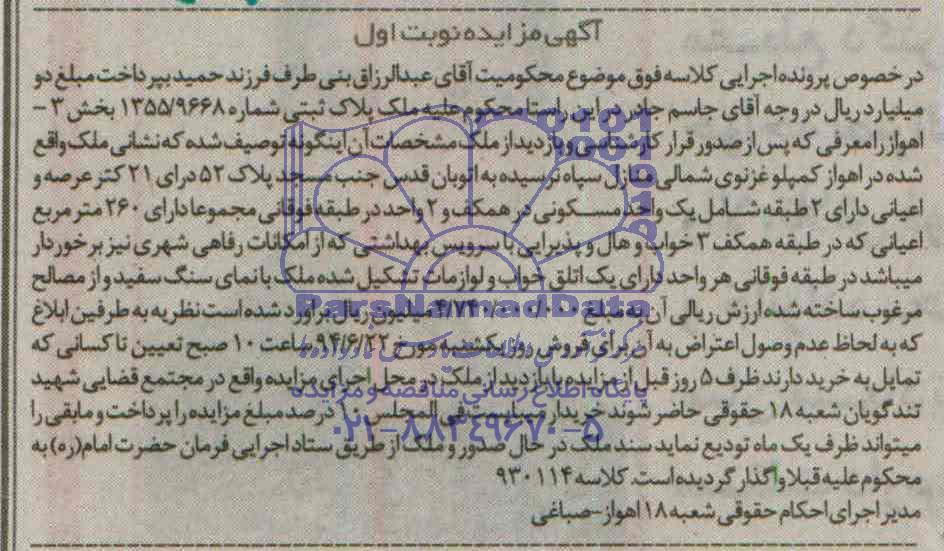 آگهی مزایده نوبت اول
در خصوص پرونده اجرایی کلاسه فوق موضوع محکومیت آقای عبدالرزاق بنی طرف فرزند حمید بپرداخت مبلغ دو
میلیارد ریال در وجه آقای جاسم جادر در این راستا محکوم علیه ملک پلاک ثبتی شماره ۱۳۵۵/۹۶۶۸ بخش ۳ -
اهواز را معرفی که پس از صدور قرار کارشناسی و بازدید از ملک مشخصات آن اینگونه توصیف شده که نشانی ملک واقع
شده در اهواز کمپلو غزنوی شمالی منازل سپاه نرسیده به اتوبان قدس جنب مسجد پلاک ۵۲ درای ۲۱ کتر عرصه و
اعیانی دارای ۲ طبقه شامل یک واحد مسکونی در همکف و ۲ واحد در طبقه فوقانی مجموعا دارای ۲۶۰ متر مربع
اعیانی که در طبقه همکف ۳ خواب و هال و پذیرایی با سرویس بهداشتی که از امکانات رفاهی شهری نیز برخوردار
میباشد در طبقه فوقانی هر واحد دارای یک اتلق خواب و لوازمات تشکیل شده ملک با نمای سنگ سفید و از مصالح
مرغوب ساخته شده ارزش ریالی آن به مبلغ ۴/۷۴۰/۰۰۰/۰۰۰ میلیون ریال برآورد شده است نظریه به طرفین ابلاغ
که به لحاظ عدم وصول اعتراض به آن برای فروش روز یکشنبه مورخ ۹۴/۶/۲۲ ساعت ۱۰ صبح تعیین تا کسانی که
تمایل به خرید دارند ظرف ۵ روز قبل از مزایده با بازدید از ملک در محل اجرای مزایده واقع در مجتمع قضایی شهید
تندگویان شعبه ۱۸ حقوقی حاضر شوند خریدار میبایست فی المجلس ۱۰ درصد مبلغ مزایده را پرداخت و مابقی را
میتواند ظرف یک ماه تودیع نماید سند ملک در حال صدور و ملک از طریق ستاد اجرایی فرمان حضرت امام(ره) به
محکوم علیه قبلا واگذار گردیده است. کلاسه ۹۳۰۱۱۴
مدیر اجرای احکام حقوقی شعبه ۱۸ اهواز-صباغی
ParsNamadData
پایگاه اطلاع رسانی مناقصه و مزایده
۰۲۱-۸۸۳۴۹۶۷۰-۵